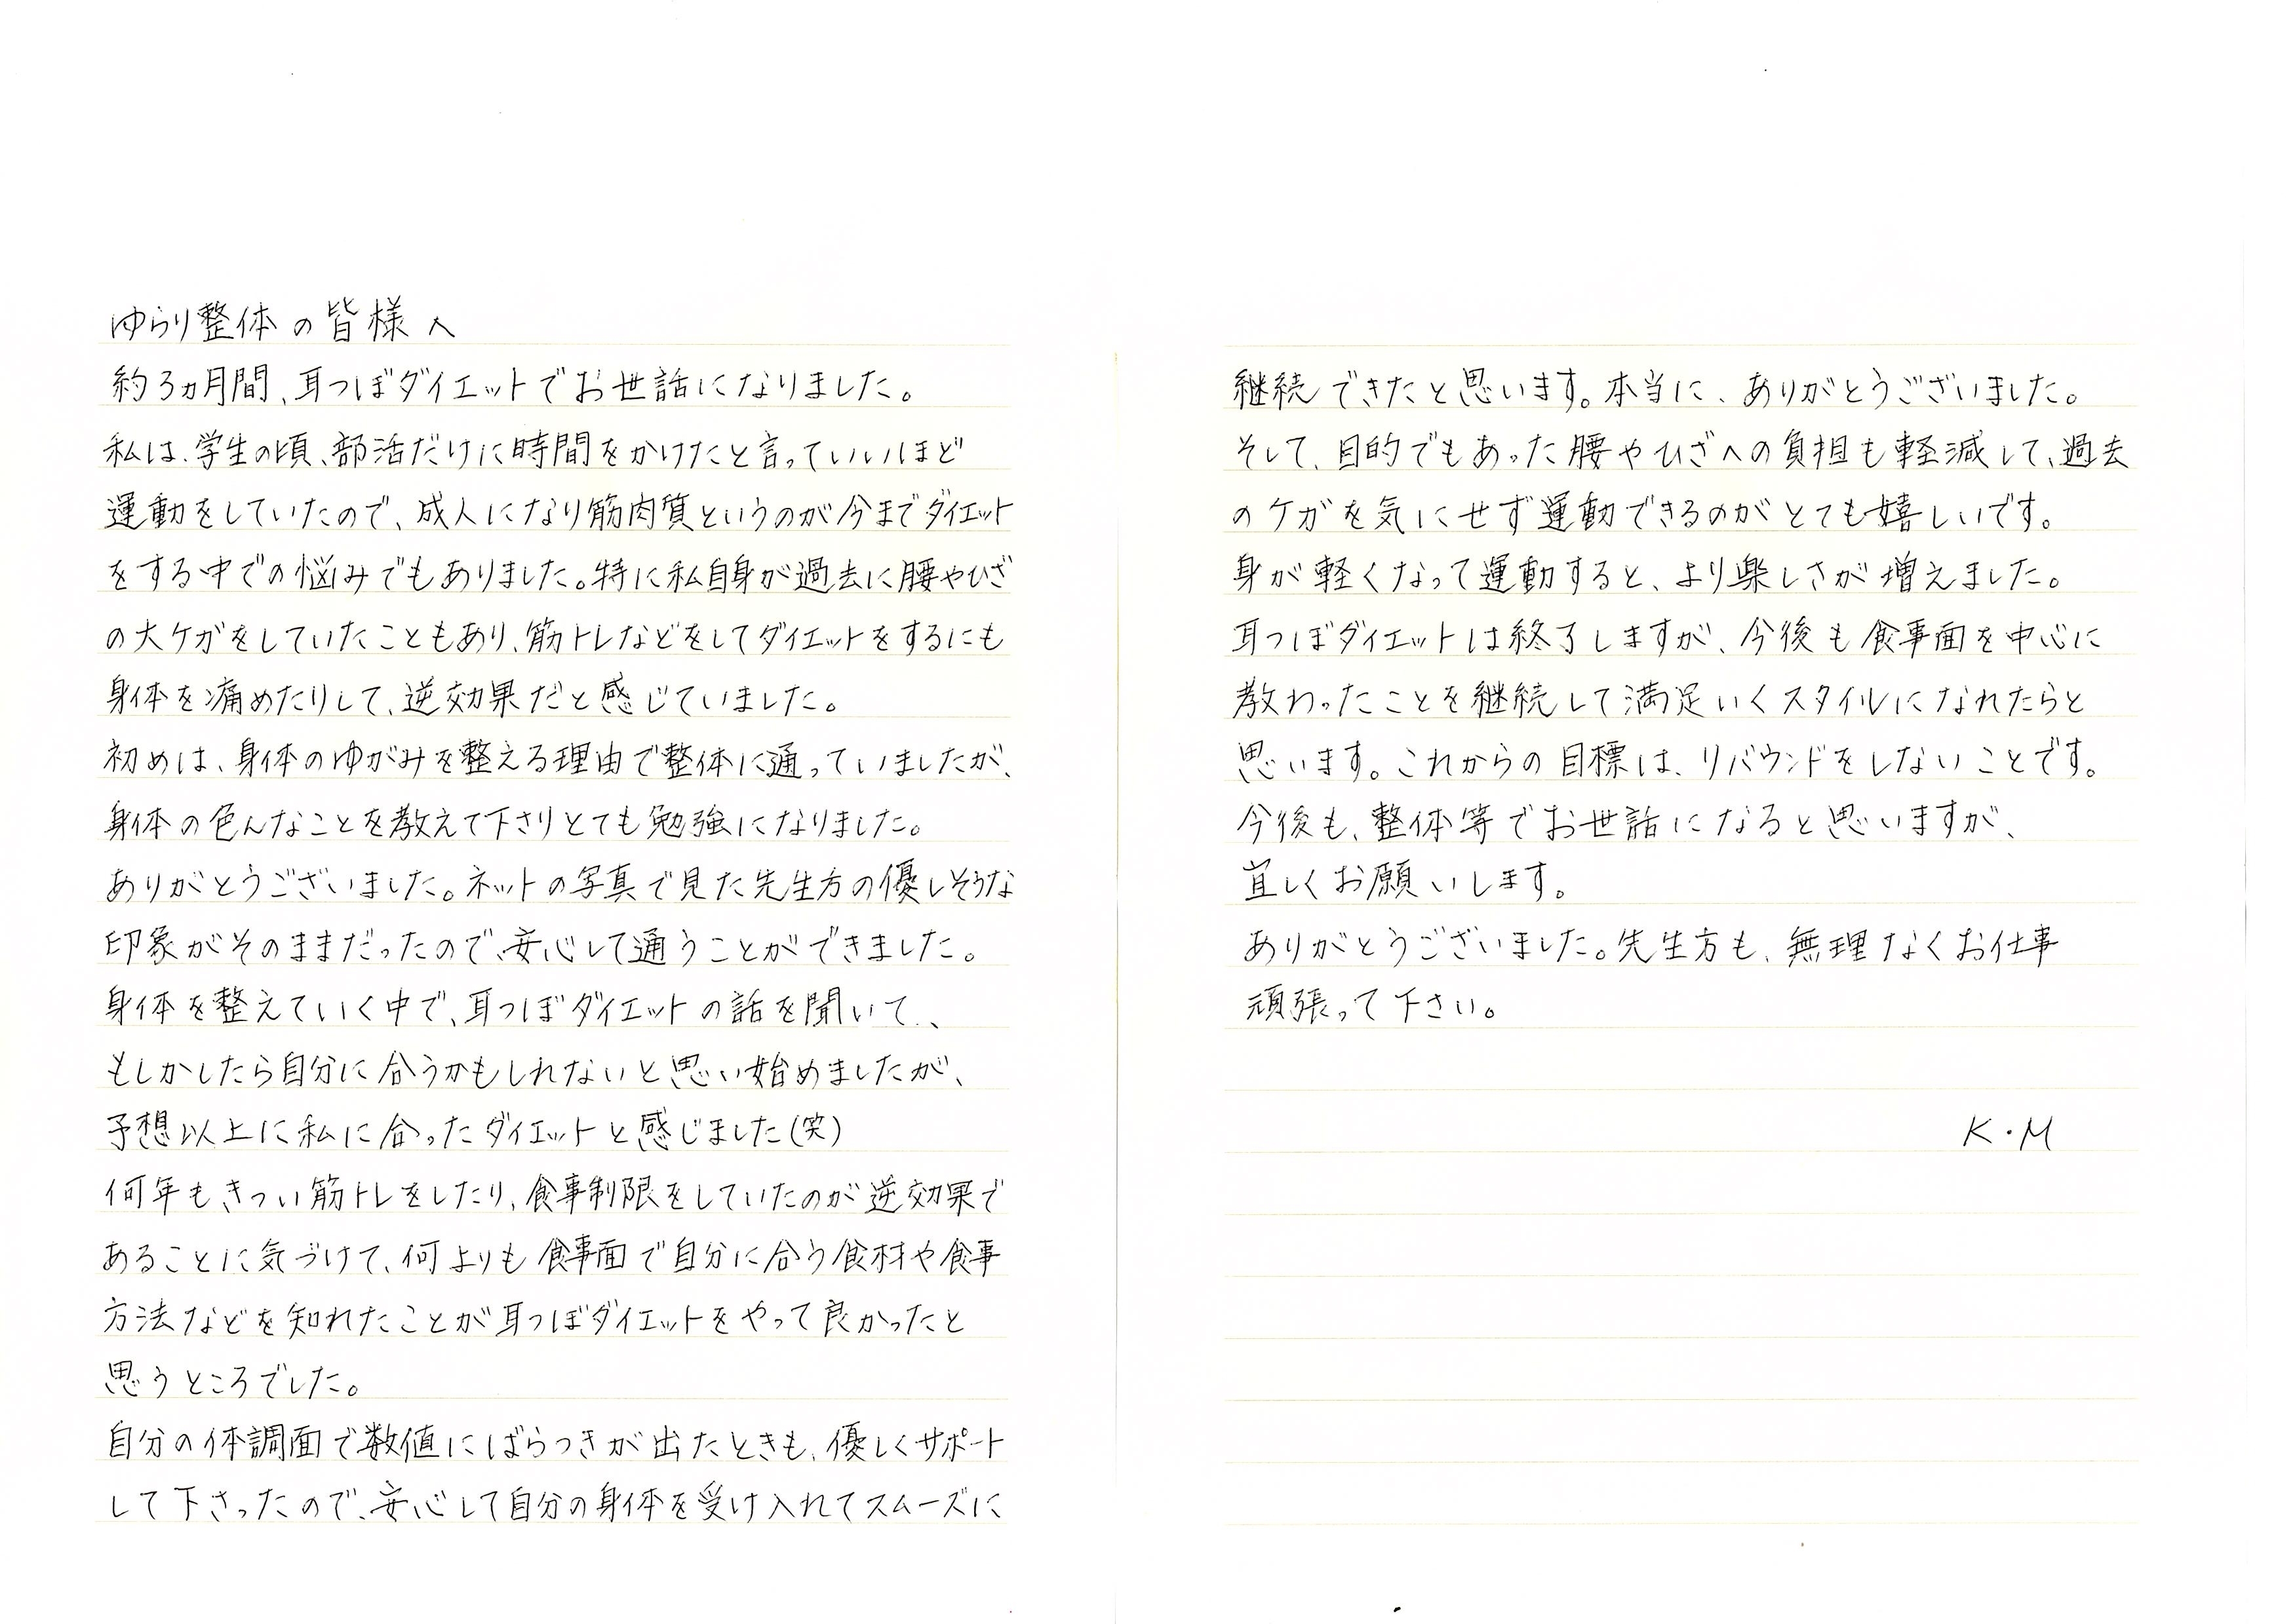 ゆらり整体の皆様へ
約3ヵ月間、耳つぼダイエットでお世話になりました。
私は、学生の頃、部活だけに時間をかけたと言っていいほど
運動をしていたので、成人になり筋肉質というのが今までダイエット
をする中での悩みでもありました。特に私自身が過去に腰やひざ
の大ケガをしていたこともあり、筋トレなどをしてダイエットをするにも
身体を痛めたりして、逆効果だと感じていました。
初めは、身体のゆがみを整える理由で整体に通っていましたが、
身体の色んなことを教えて下さりとても勉強になりました。
ありがとうございました。ネットの写真で見た先生方の優しそうな
印象がそのままだったので、安心して通うことができました。
身体を整えていく中で、耳つぼダイエットの話を聞いて、、
もしかしたら自分に合うかもしれないと思い始めましたが、
予想以上に私に合ったダイエットと感じました(笑)
何年もきつい筋トレをしたり、食事制限をしていたのが逆効果で
あることに気づけて、何よりも食事面で自分に合う食材や食事
方法などを知れたことが耳つぼダイエットをやって良かったと
思うところでした。
自分の体調面で数値にばらつきが出たときも、優しくサポート
して下さったので、安心して自分の身体を受け入れてスムーズに
継続できたと思います。本当に、ありがとうございました。
そして、目的でもあった腰やひざへの負担も軽減して、過去
のケガを気にせず運動できるのがとても嬉しいです。
身が軽くなって運動すると、より楽しさが増えました。
耳つぼダイエットは終了しますが、今後も食事面を中心に
教わったことを継続して満足いくスタイルになれたらと
思います。これからの目標は、リバウンドをしないことです。
今後も、整体等でお世話になると思いますが、
宜しくお願いします。
ありがとうございました。先生方も、無理なくお仕事
頑張って下さい。
K・M